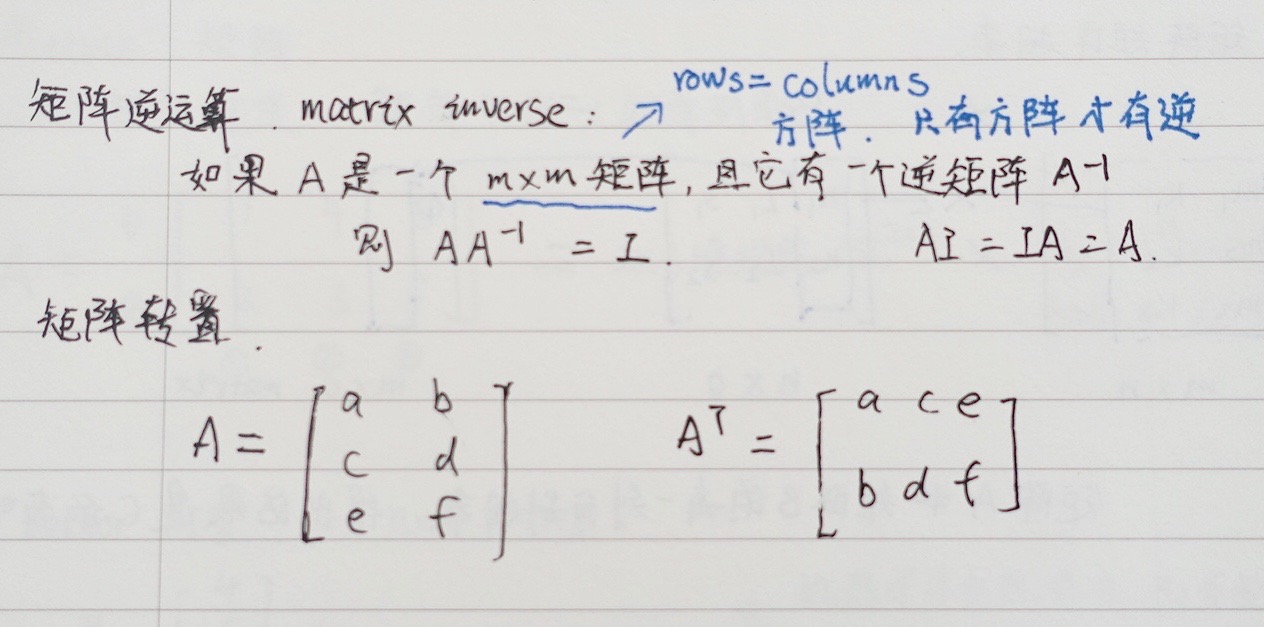 矩阵逆运算. matrix inverse: ↗ rows = columns
方阵. 只有方阵才有逆
如果 A 是一个 m×m 矩阵, 且它有一个逆矩阵 A⁻¹
则 AA⁻¹ = I. AI = IA = A.
矩阵转置.
A = [a b; c d; e f] Aᵀ = [a c e; b d f]